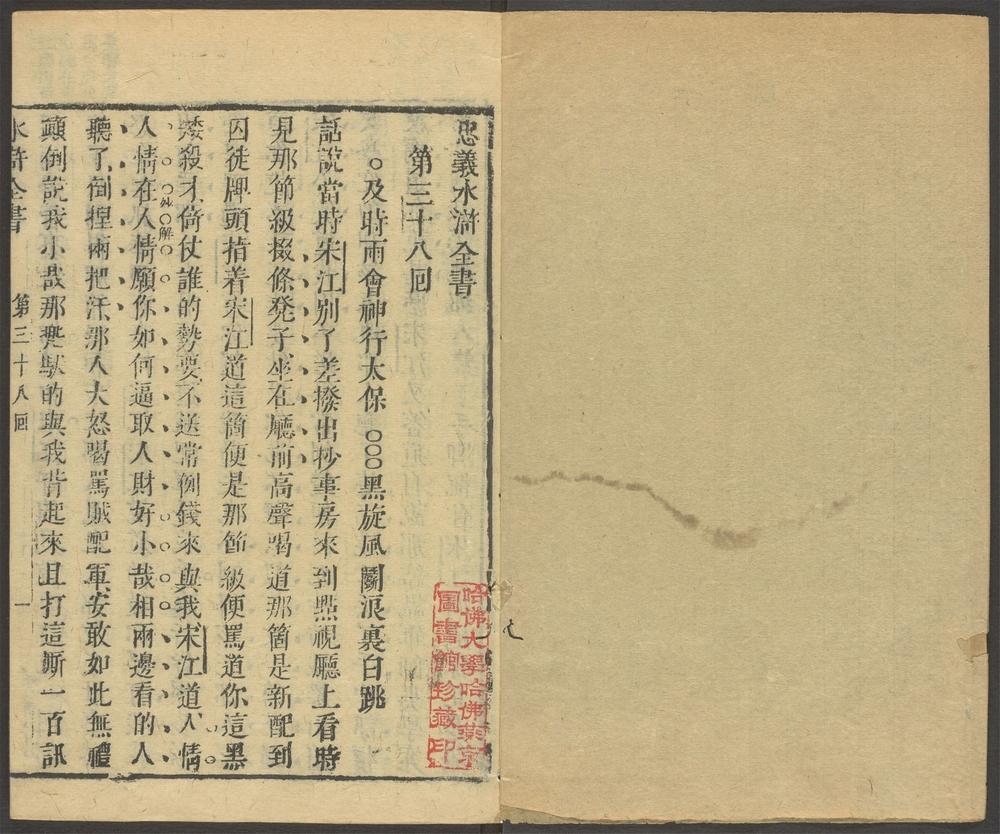 忠義水滸全書
第三十八囘
及時雨會神行太保 黑旋風鬭浪裏白跳
話說當時宋江別了差撥出抄事房來到點視廳上看時
見那節級掇條凳子坐在廳前高聲喝道那箇是新配到
囚徒牌頭指着宋江道這箇便是那節級便罵道你這黑
矮殺才倚仗誰的勢要不送常例錢來與我宋江道人情
妙解
人情在人情願你如何逼取人財好小哉相兩邊看的人
聽了倒捏兩把汗那人大怒喝罵賊配軍安敢如此無禮
顛倒說我小哉那兜馱的與我背起來且打這厮一百訊
水滸全書 第三十八囘 一
哈佛大學哈佛燕京
圖書館珍藏印